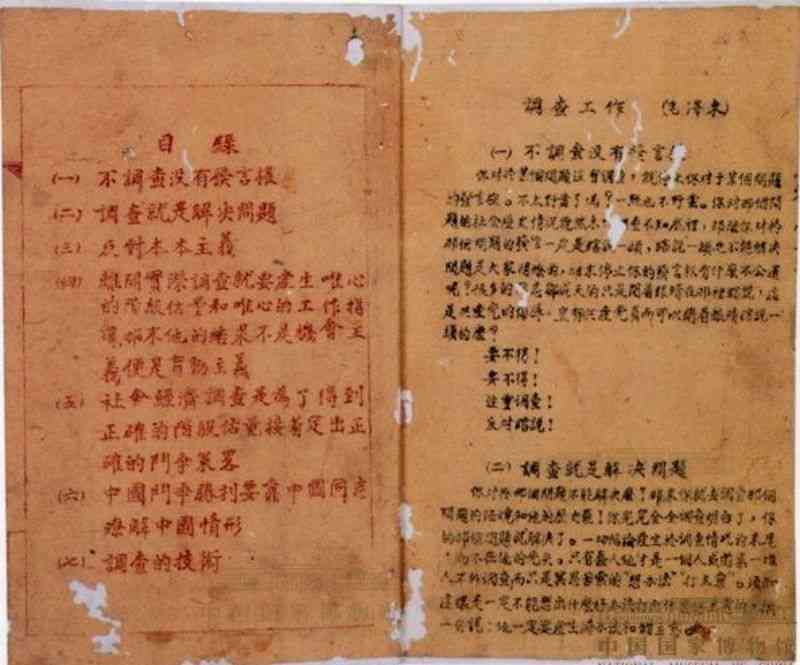 目錄
(一) 不調查没有發言權
(二) 調查就是解决問題
(三) 反对本本主義
(四) 離開實際調查就要產生唯心
的階級估量和唯心的工作指
導，那末他的結果不是機會主
義便是盲動主義
(五) 社会經濟調查是為了得到
正確的階級估量接着定出正
確的鬥争策畧
(六) 中國鬥争勝利要靠中國同志
瞭解中國情形
(七) 調查的技術
調查工作 (毛澤东)
(一) 不調查没有發言
你对於某個問題没有調查，就停止你对于某個問題
的發言權。不太野蛮了嗎？一點也不野蛮。你对那個問
題的社会歷史情况既然未調查不知底裡，那麽你对於
那個問題的發言一定是瞎説一頓，瞎説一頓之不能解决
問題是大家明瞭的，那末停止你的發言權有什麽不公道
呢？很多的同志都成天的只是閉着眼睛在那裡瞎説，這
是共產黨的侮辱。豈有共產黨員而可以閉着眼睛瞎説一
頓的麽？
要不得！
要不得！
注重調查！
反对瞎説！
(二) 調查就是解决問題
你对於那個問題不能解决麽？那末你就去調查那個
問題的現狀和他的歷史罷！你完完全全調查明白了，你
的那個問題就解决了。一切結論發生於調查情况的末尾
而不在他的先头。只有蠢人他才是一個人或邀集一堆
人不作調查而只是冥思苦索的"想办法""打主意"。
這樣是一定不能想出什麽好办法打出什麽好主意的，
一句説：他一定要產生錯办法和錯主意。
中国国家博物館